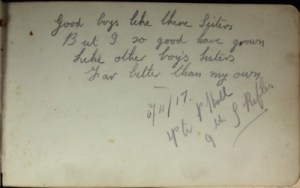 Good boys like there Sisters
But I so good have grown
Like other boy's sisters
Far better than my own
6/11/17.
Hall
9th S Rifles